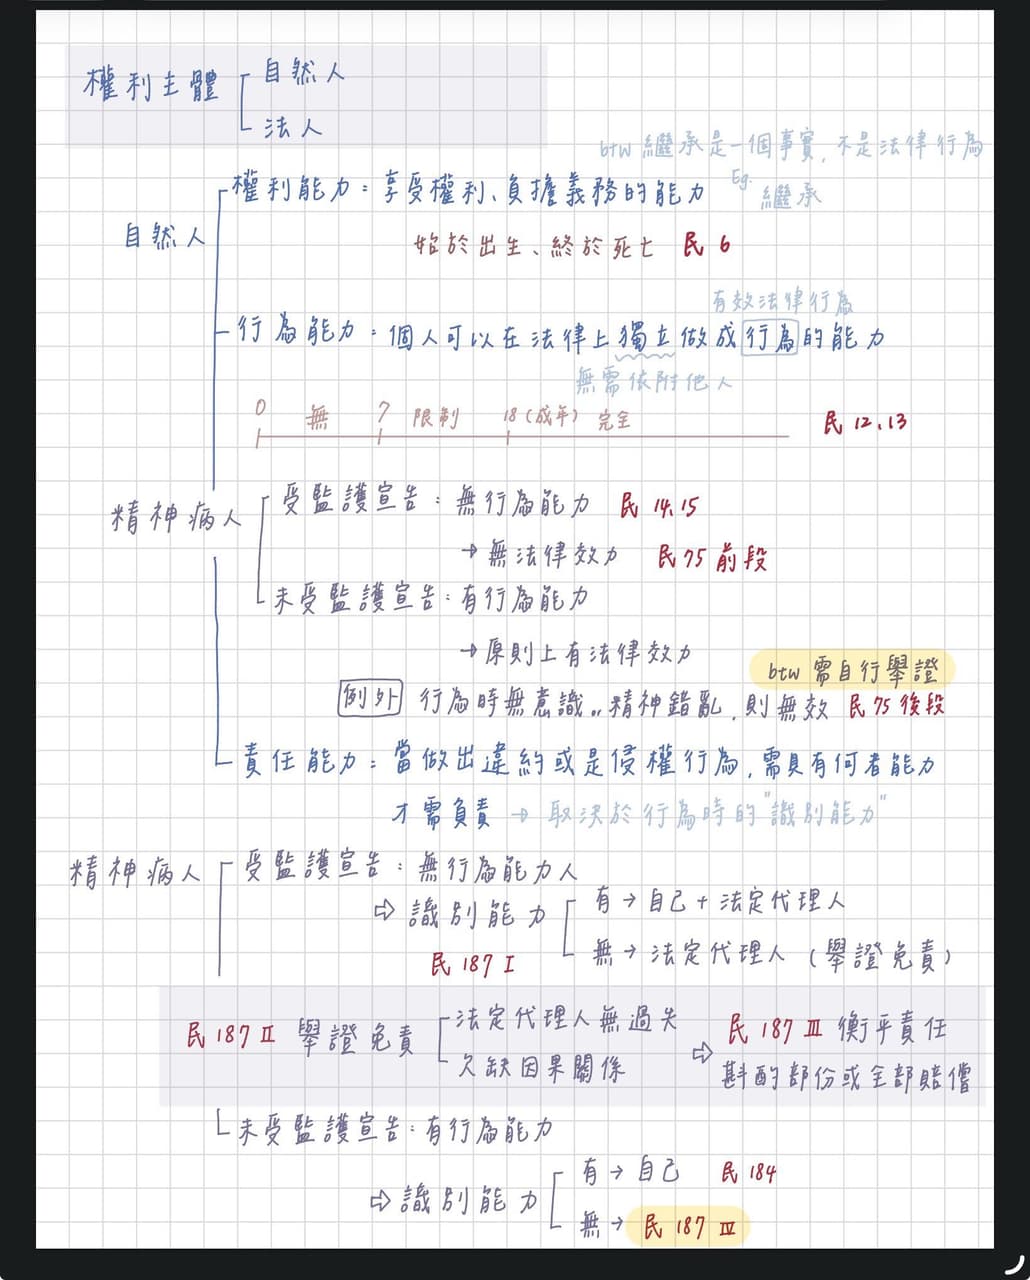 權利主體 自然人
法人
btw 繼承是一個事實, 不是法律行為
權利能力：享受權利、負擔義務的能力 Eg. 繼承
自然人
始於出生、終於死亡 民 6
有效法律行為
行為能力：個人可以在法律上獨立做成行為的能力
無需依附他人
0 無 7 限制 18 (成年) 完全
民 12、13
精神病人 受監護宣告：無行為能力 民 14、15
→ 無法律效力 民 75 前段
未受監護宣告：有行為能力
→ 原則上有法律效力
btw 需自行舉證
例外 行為時無意識..精神錯亂, 則無效 民 75 後段
責任能力：當做出違約或是侵權行為, 需具有何者能力
才需負責 → 取決於行為時的"識別能力"
精神病人 受監護宣告：無行為能力人
⇨ 識別能力 有 → 自己 + 法定代理人
無 → 法定代理人 (舉證免責)
民 187 I
民 187 II 舉證免責 法定代理人無過失
欠缺因果關係
⇨ 民 187 III 衡平責任
斟酌部份或全部賠償
未受監護宣告：有行為能力
⇨ 識別能力 有 → 自己 民 184
無 → 民 187 IV